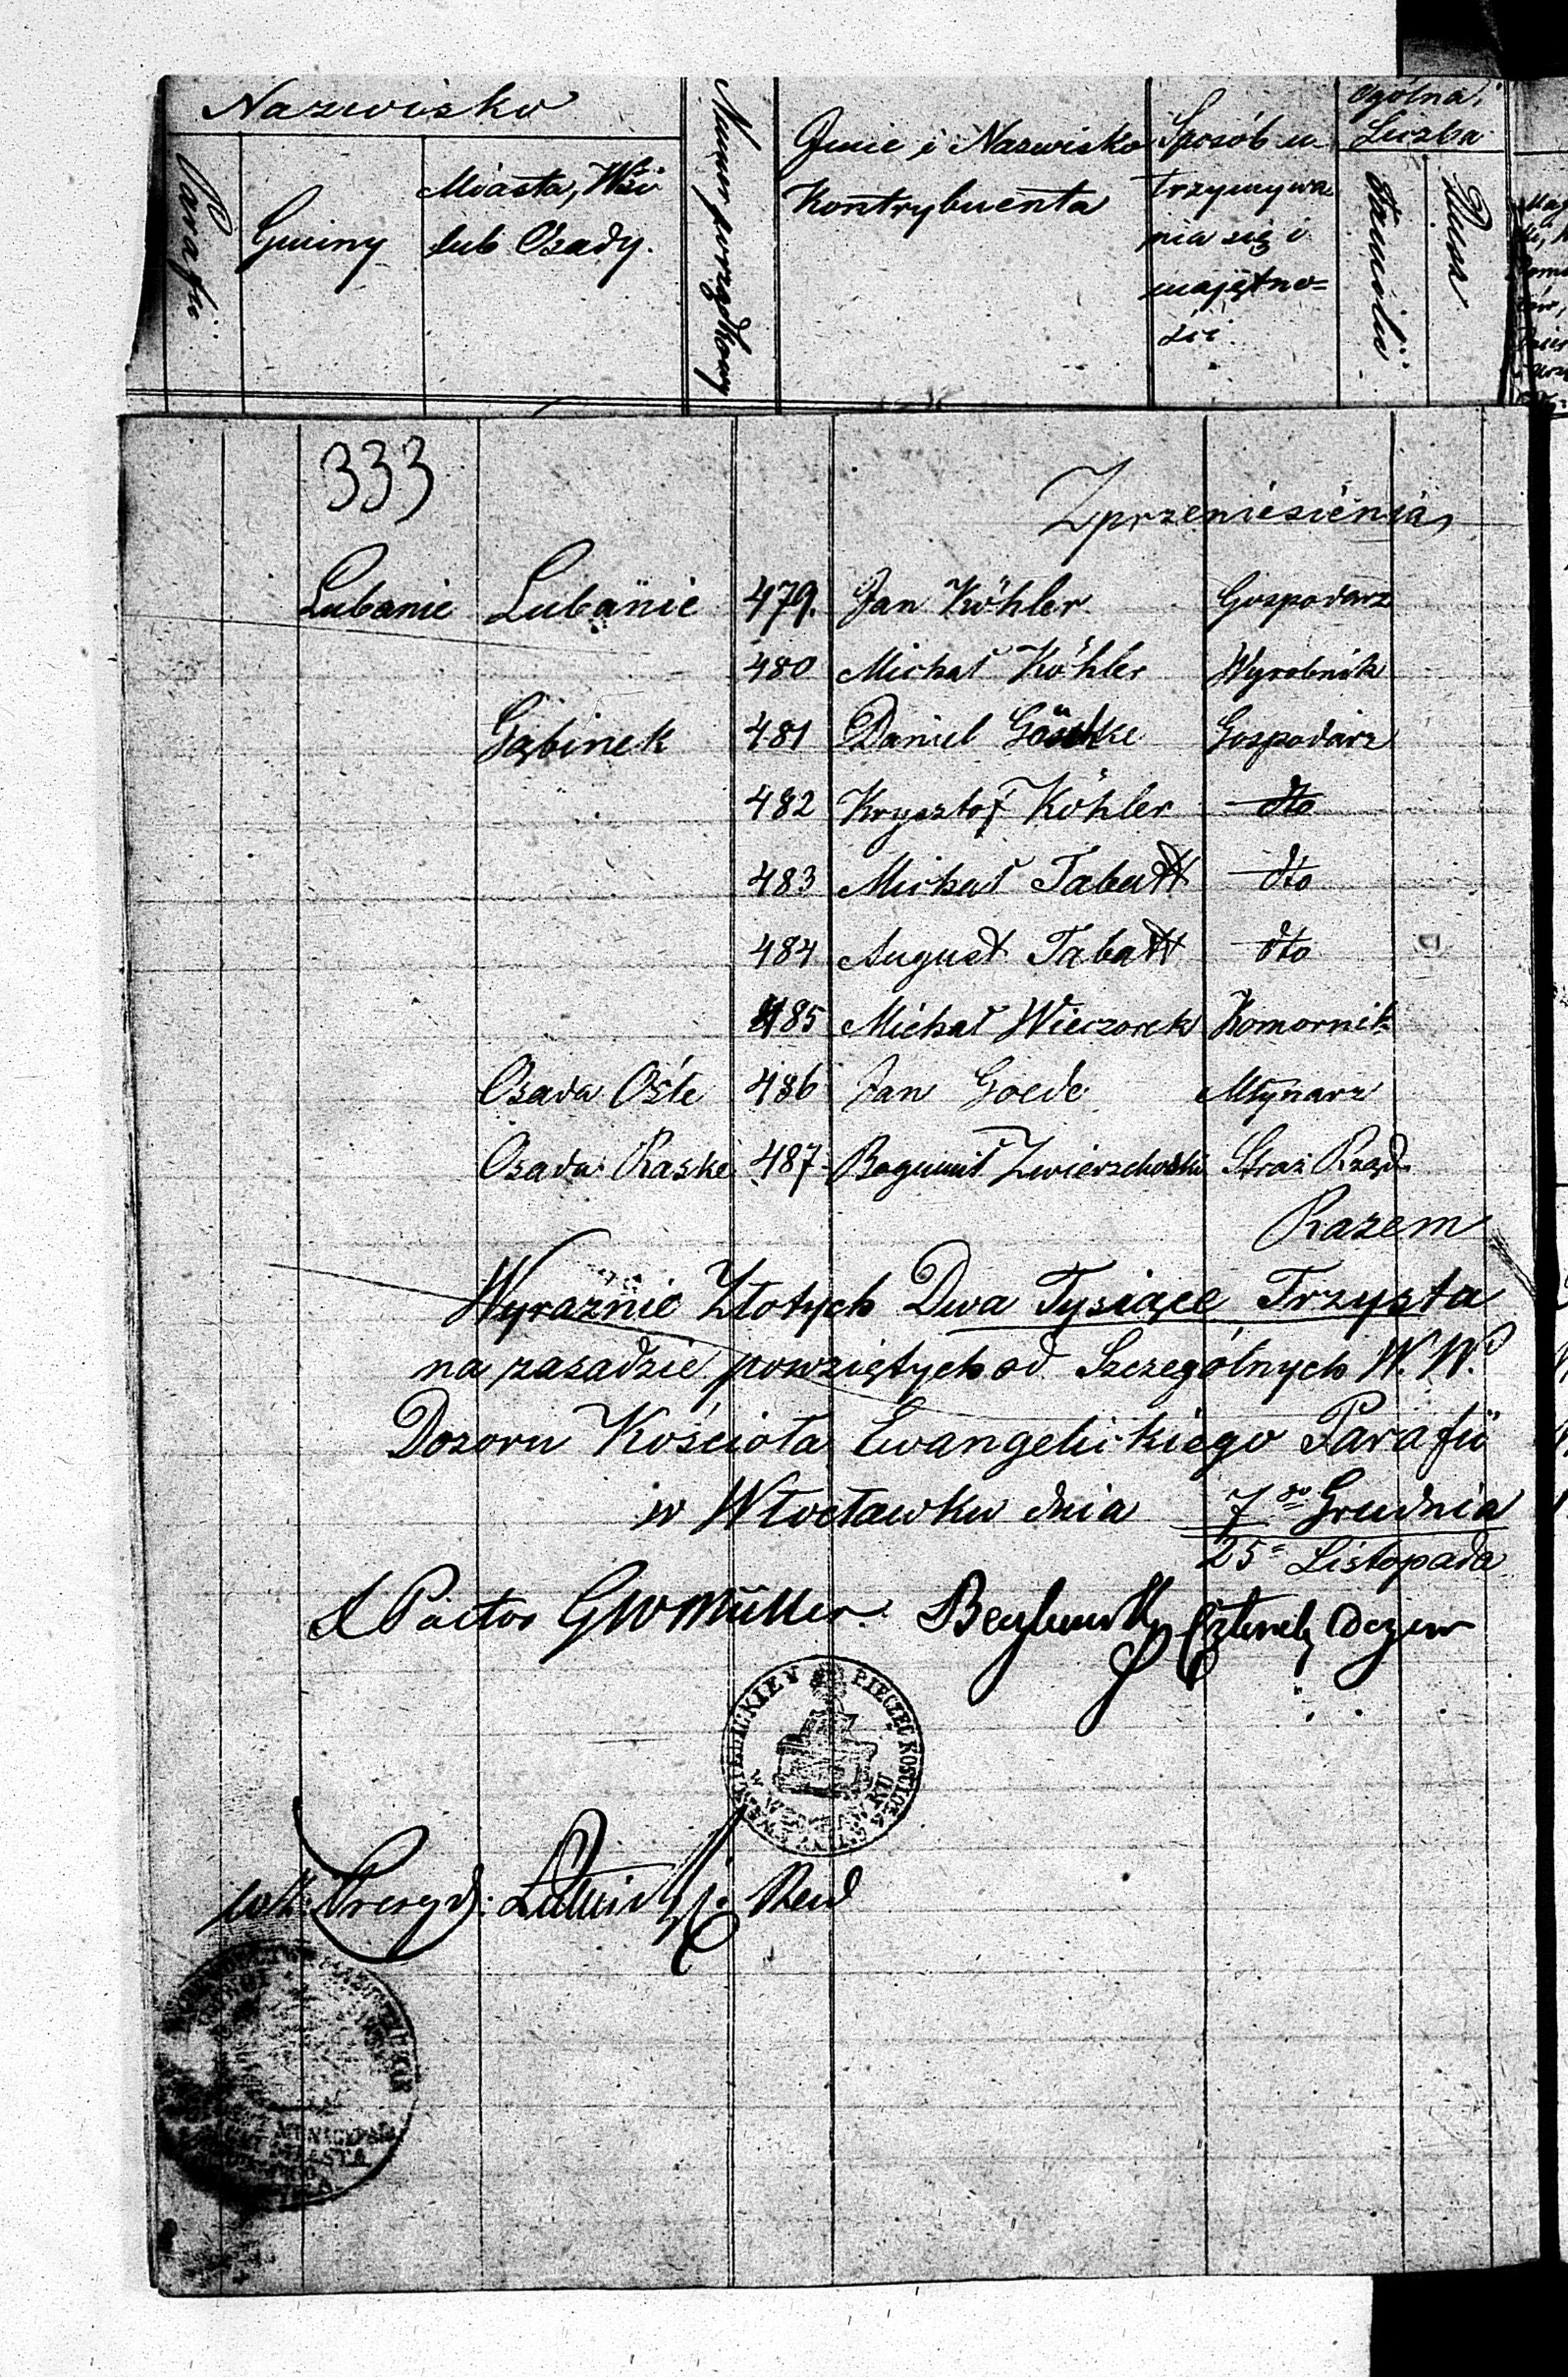 Nazwisko
Parafii
Gminy
Miasta, Wsi
lub Osady.
Numer porządkowy
Imie i Nazwisko
Kontrybuenta
Sposób u-
trzymywa
nia się i
majętno=
ści.
Ogólna
Liczba
Familii
Dusz
333
Zprzeniésiénia
Lubanie Lubanie 479. Jan Köhler Gospodarz
480 Michał Köhler Wyrobnik
Gąbinek 481 Daniel Gospodarz
482 Krysztof Köhler dto
483 Michał Tabatt dto
484 August Tabatt dto
485 Michał Wieczorek Komornik
Osada Ośle 486 Jan Goede Młynarz
Osada Raske 487 Bogumił Zwierzchoski Straż Rząd.
Razem
Wyraźnie Złotych Dwa Tysiące Trzysta
na zasadzie powziętych od Szczególnych W. W.
Dozoru Kościoła Ewangelickiego Parafii
w Włocławku dnia 7go Grudnia
25 Listopada
Pastor GW Müller
PIECZĘĆ KOSCIOŁA EWANGIELICKIEY
Prezyd.
MUNICYPAL